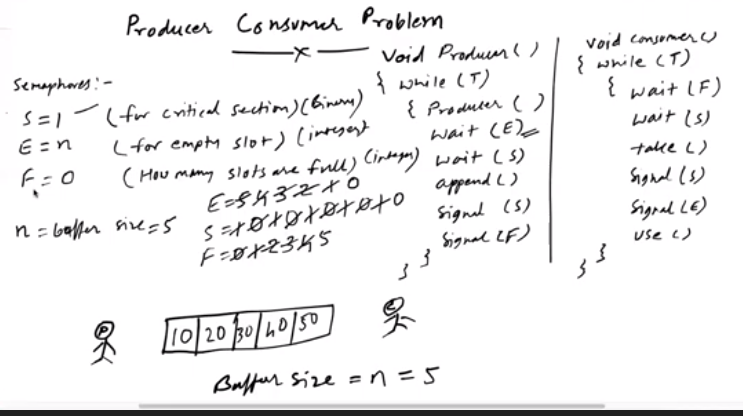 Producer Consumer Problem
Semaphores:-
S=1 (for critical section) (Binary)
E=n (for empty slot) (integer)
F=0 (How many slots are full) (integer)
n = buffer size = 5
E=5 4 3 2 1 0
S=1 0 1 0 1 0 1 0 1 0
F=0 1 2 3 4 5
Void Producer()
{ while (T)
{ Producer ()
wait (E)
wait (S)
append ()
Signal (S)
Signal (F)
}
}
void consumer()
{ while (T)
{ wait (F)
wait (S)
take ()
Signal (S)
Signal (E)
use ()
}
}
P
C
10 20 30 40 50
Buffer size = n = 5